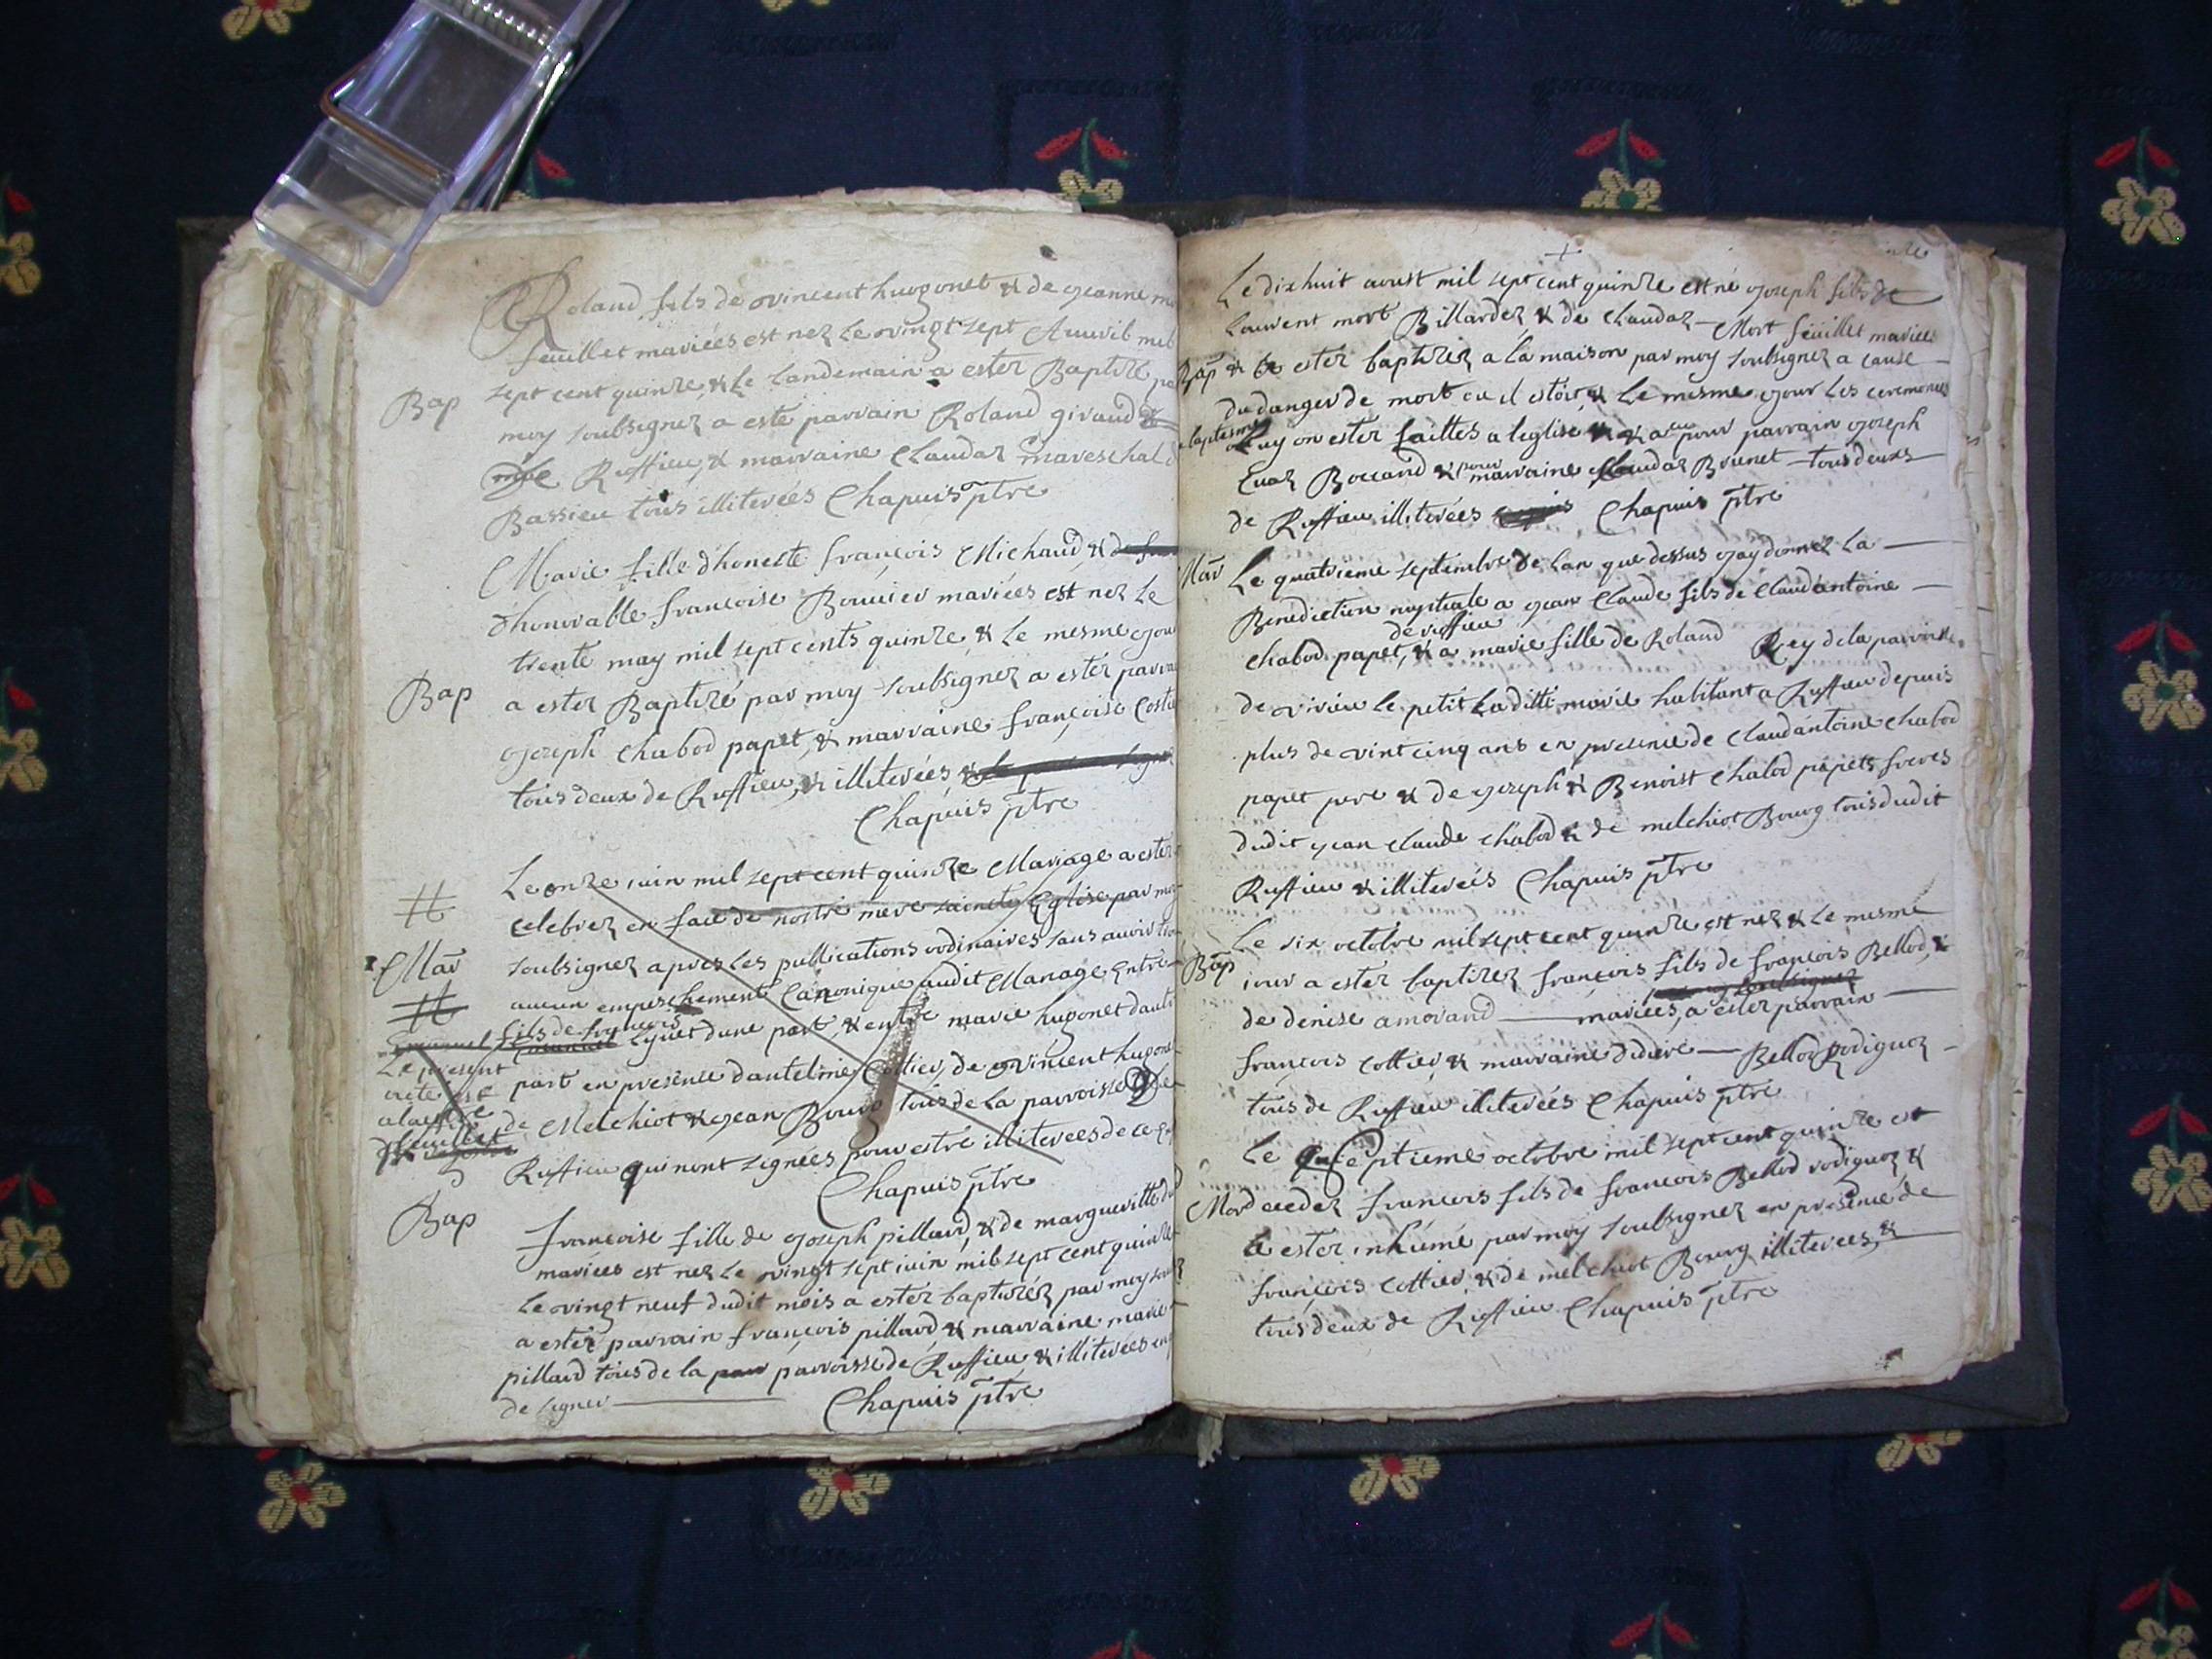 Roland fils de vincent hugonet & de jeanne
feuillet mariées est nez le vingt sept Auvril mil
Bap
sept cent quinze, & le landemain a ester Baptizé
moy soubsignez a este parrain Roland giraud &
de Ruffieu, & marraine Claudaz mareschal
Bassieu tous illiterées Chapuis ptre
Marie fille dhoneste françois Michaud, &
dhonorable françoise Bouvier mariées est nez le
trente may mil sept cents quinze, & le mesme jour
Bap
a ester Baptizé par moy soubsignez a ester parrain
joseph chabod papet, & marraine françoise
tous deux de Ruffieu, & illiterées &
Chapuis ptre
Le onze iuin mil sept cent quinze Mariage a ester
celebrez en face de nostre mere saincte Eglise par moy
Mar
soubsignez apres les publications ordinaires sans auoir
aucun empeschement Canonique audit Mariage Entre
fils de françois
lyuet dune part, & entre marie hugonet
Le present
acte est
part en presence dantelme Cottier, de vincent
de Melchiot & jean Bourg tous de la parroisse de
Ruffieu qui nont signées pour estre illiterees de ce
Chapuis ptre
Bap
françoise fille de joseph pillard, & de margueritte
mariées est nez le vingt sept iuin mil sept cent quinze
le vingt neuf dudit mois a ester baptizez par moy
a ester parrain françois pillard & marraine marie
pillard tous de la parroisse de Ruffieu & illiterées
de signer
Chapuis ptre
Le dix huit aoust mil sept cent quinze est né joseph fils de
Laurent mort Billardez & de Claudaz Mort feuillet mariees
Bap & ester baptizez a la maison par moy soubsignez a cause
du danger de mort ou il estoit, & le mesme jour les ceremonies
baptesme
luy on ester faittes a leglise & a eu pour parrain joseph
Cuaz Boccard & pour marraine Claudaz Brunet tous deux
de Ruffieu illiterées Chapuis ptre
Mar
Le quatrieme septembre de lan que dessus jay donnez la
Benediction nuptiale a jean Claude fils de Claudantoine
de ruffieu
chabod papet, & a marie fille de Roland Rey de la parroisse
de virieu le petit laditte marie habitant a Ruffieu depuis
plus de vint cinq ans en presence de Claudantoine chabod
papet pere & de joseph & Benoist chabod papets freres
dudit jean claude chabod & de melchiot Bourg tous dudit
Ruffieu & illiterées Chapuis ptre
Le six octobre mil sept cent quinze est nez & le mesme
Bap
iour a ester baptizez françois fils de françois Bellod, &
de denise amorand mariees, a ester parrain
françois Cottier & marraine didiere Bellod rodiguoz
tous de Ruffieu illiterées Chapuis ptre
Le septieme octobre mil sept cent quinze est
Mor
decedez françois fils de françois Bellod rodiguoz, &
a ester inhumé par moy soubsignez en presence de
françois Cottier & de melchiot Bourg illiterees, &
tous deux de Ruffieu Chapuis ptre